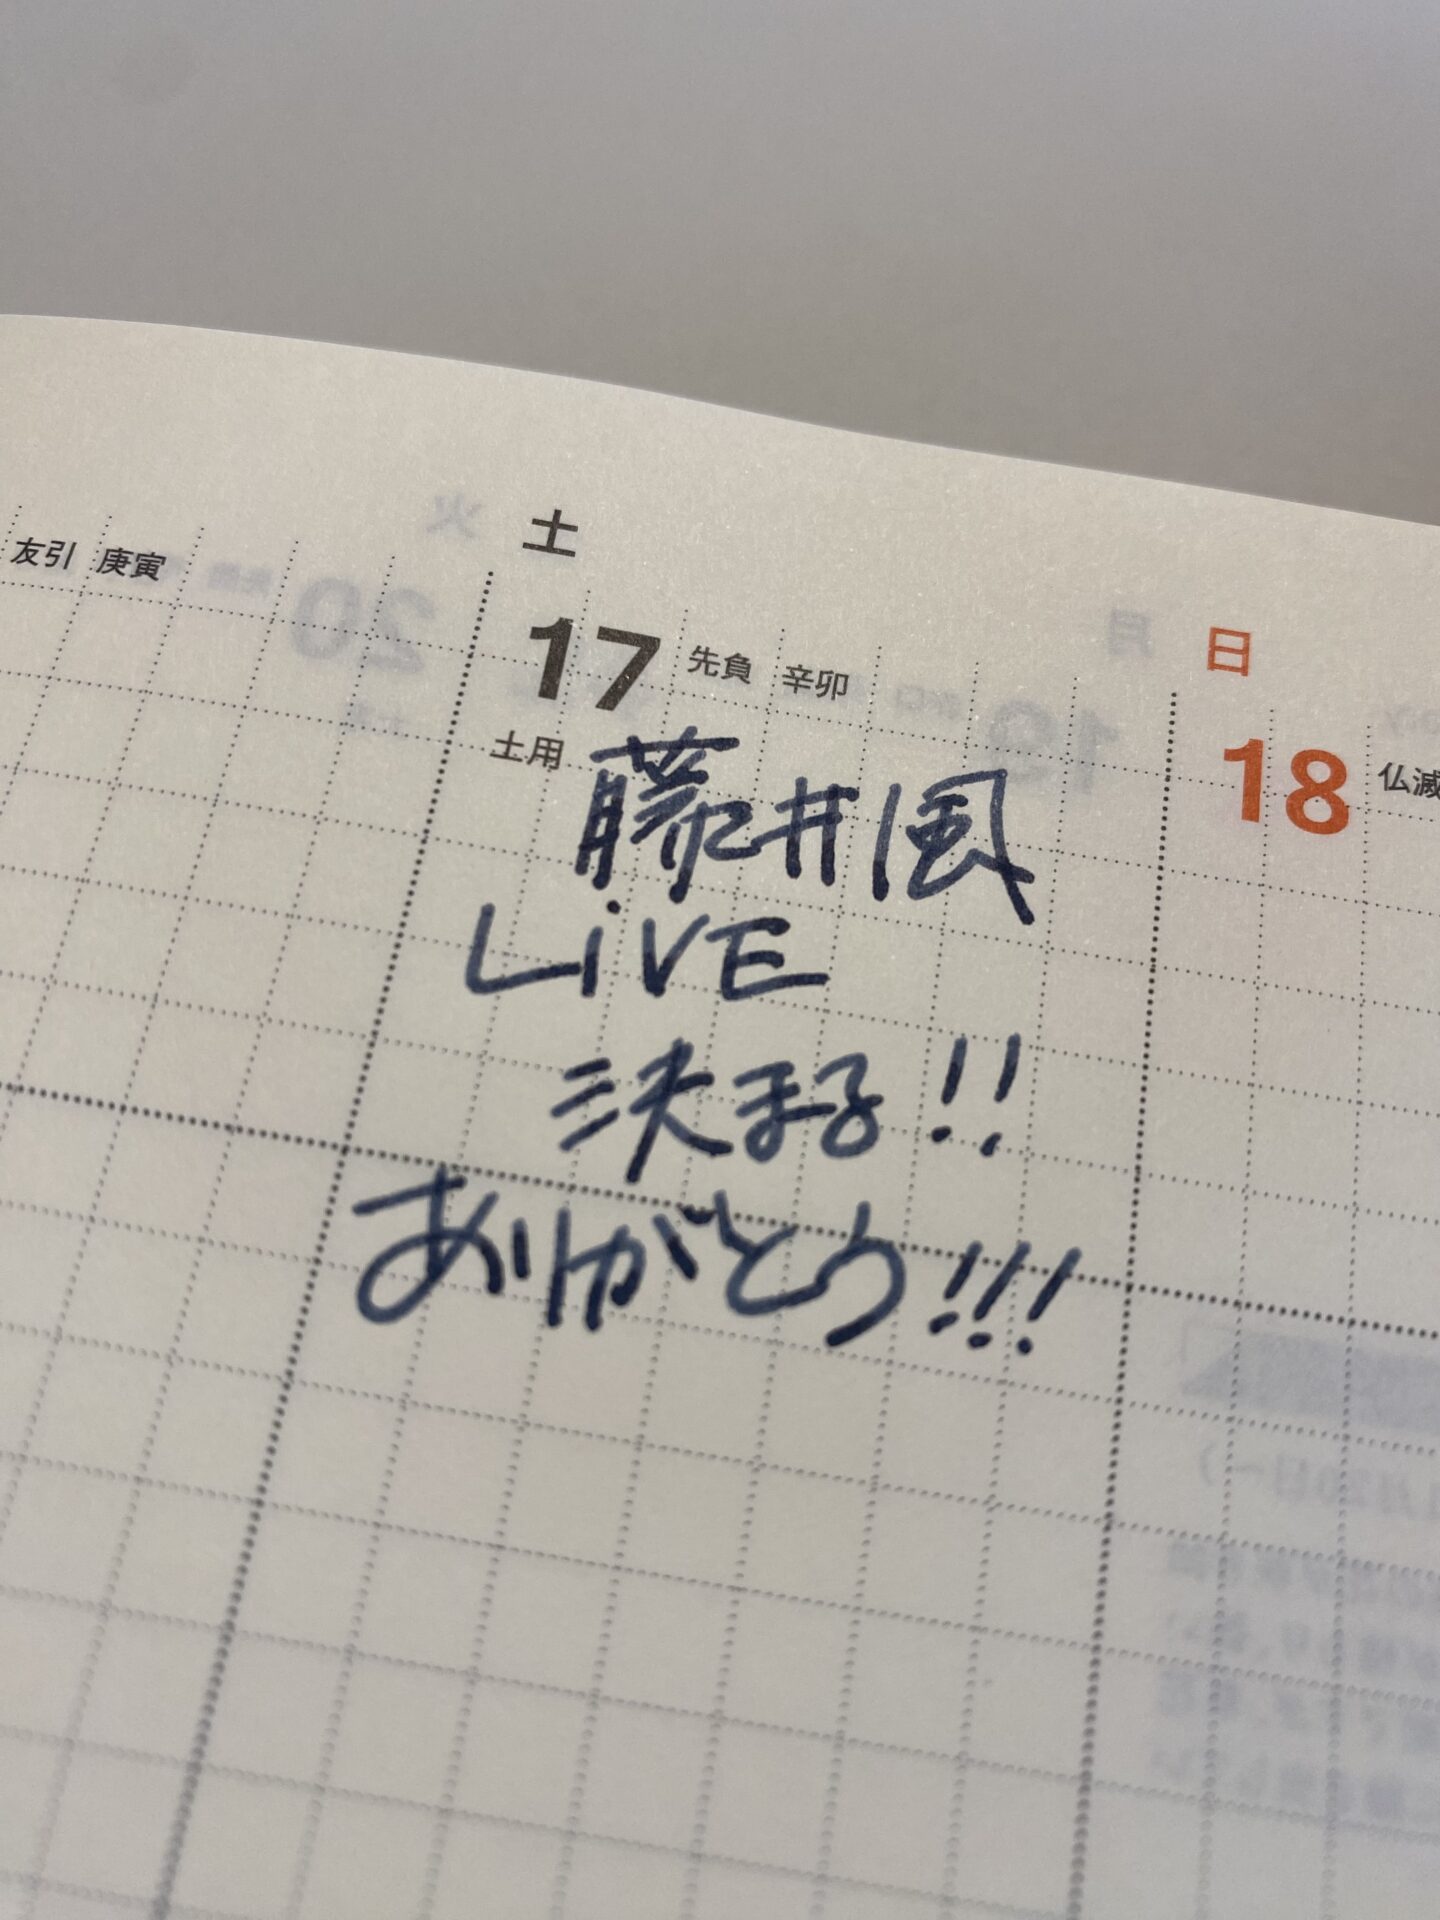 土
日
友引 庚寅
17 先負 辛卯
18 仏滅
土用
藤井風
LiVE
決まる!!
ありがとう!!!
火
20
月
19